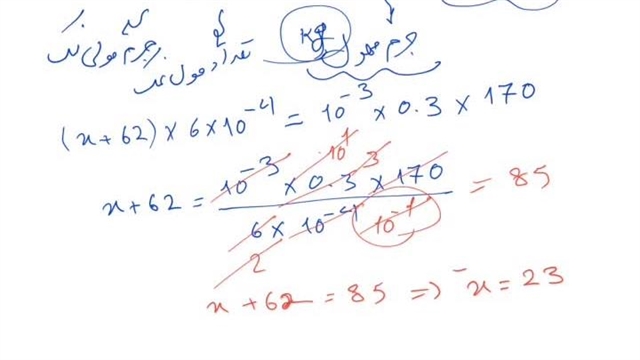 جرم مولی نمک تعداد مول نمک Kg جرم محلول
(x+62) × 6×10^-4 = 10^-3 × 0.3 × 170
x+62 = (10^-3 × 0.3 × 170) / (6 × 10^-4) 10^1 3 2 10^-1 = 85
x + 62 = 85 => x = 23